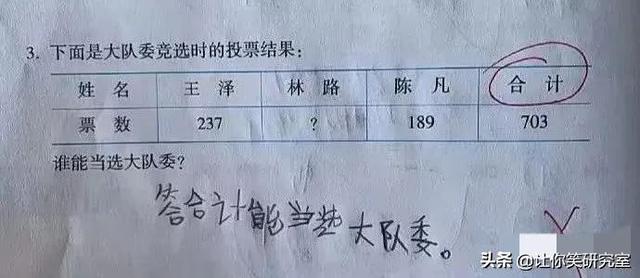 3. 下面是大队委竞选时的投票结果：
姓 名 王 泽 林 路 陈 凡 合 计
票 数 237 ? 189 703
谁能当选大队委？
答合计能当选大队委。
头条 @让你笑研究室